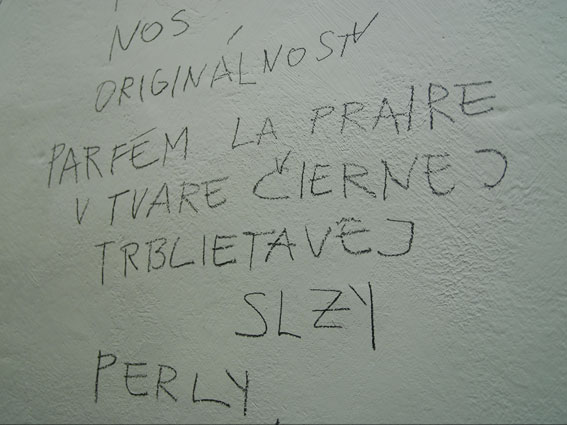 NOS
ORIGINÁLNOSTV
PARFÉM LA PRAIRE
V TVARE ČIERNEJ
TRBLIETAVEJ
SLZY
PERLY